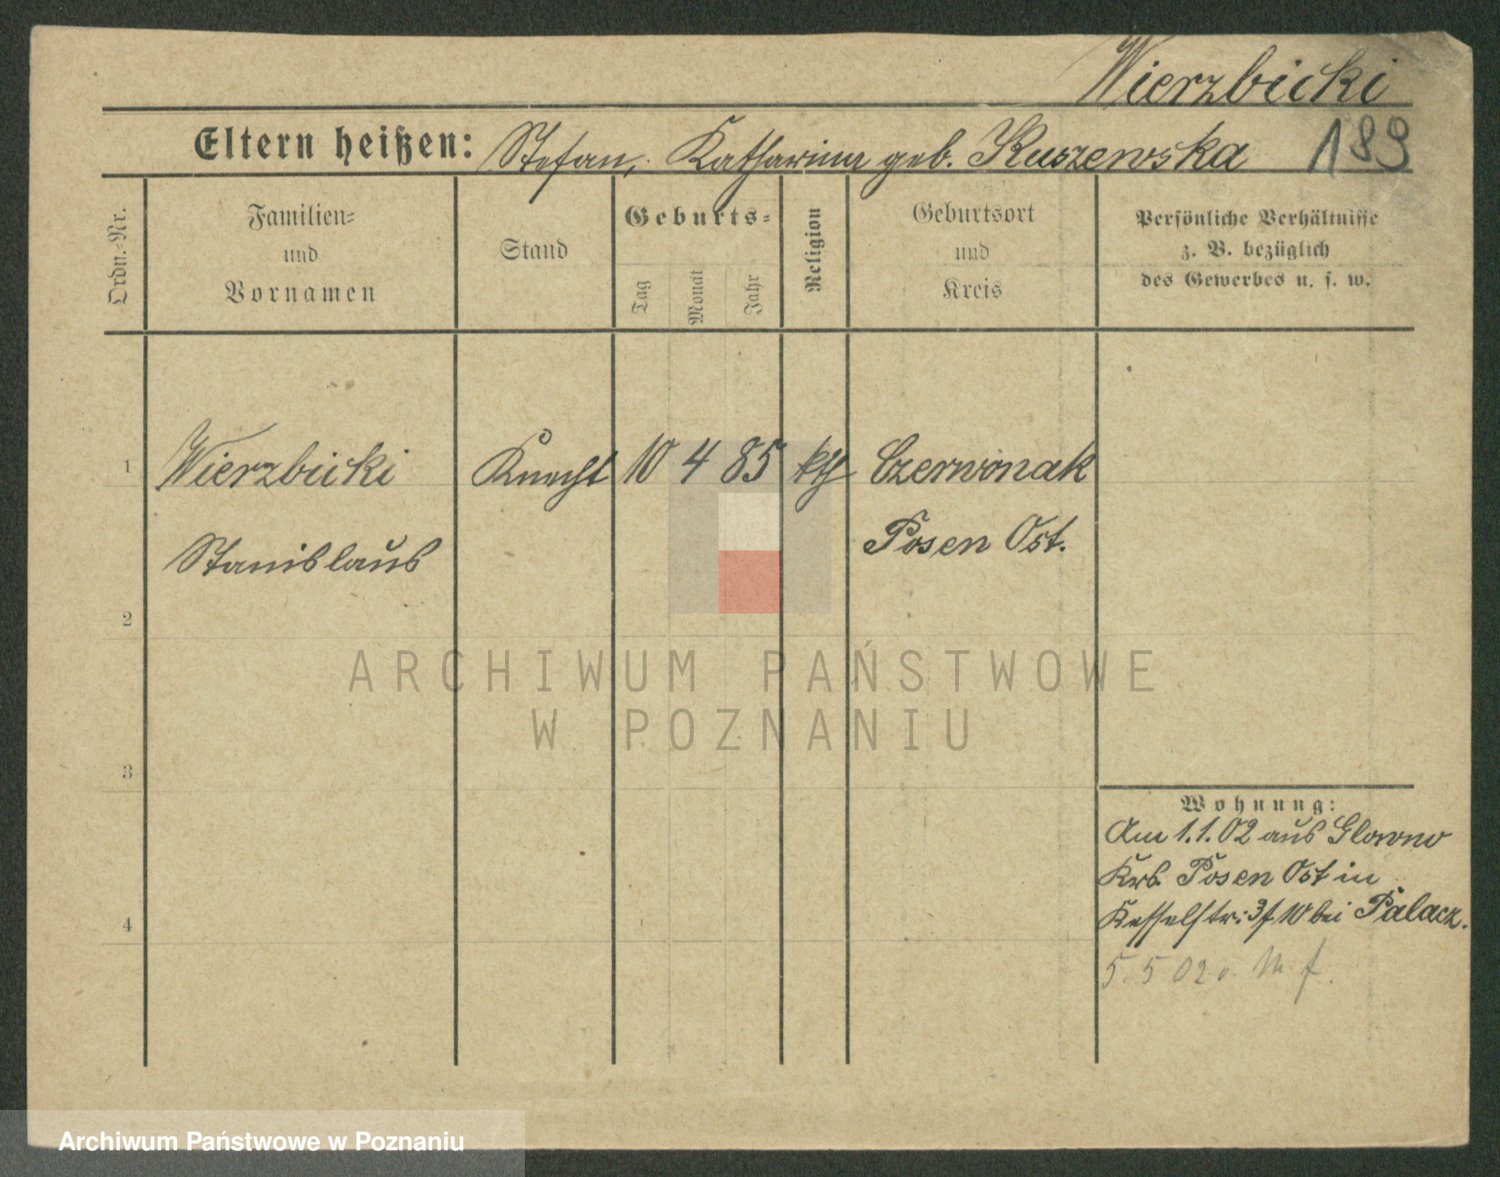 Wierzbicki
Eltern heißen: Stefan, Katharina geb. Kuszewska 189
Ordn.-Nr.
Familien-
und
Vornamen
Stand
Geburts-
Tag
Monat
Jahr
Religion
Geburtsort
und
Kreis
Persönliche Verhältnisse
z. B. bezüglich
des Gewerbes u. s. w.
1 Wierzbicki Knecht 10 4 85 kth Czerwonak
Stanislaus Posen Ost.
2
3
4
Wohnung:
Am 1.1.02 aus Glowno
Krb. Posen Ost in
Kesselstr: 3 f 10 bei Palacz.
5. 5 02
ARCHIWUM PAŃSTWOWE
W POZNANIU
Archiwum Państwowe w Poznaniu